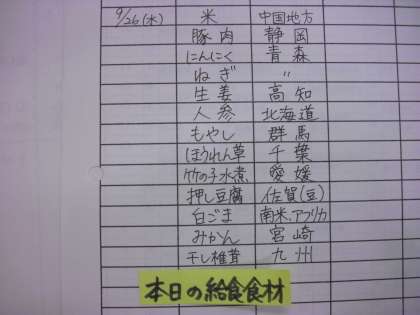 9/26(水) 米 中国地方
豚肉 静岡
にんにく 青森
ねぎ 〃
生姜 高知
人参 北海道
もやし 群馬
ほうれん草 千葉
竹の子水煮 愛媛
押し豆腐 佐賀(豆)
白ごま 南米、アフリカ
みかん 宮崎
干し椎茸 九州
本日の給食食材